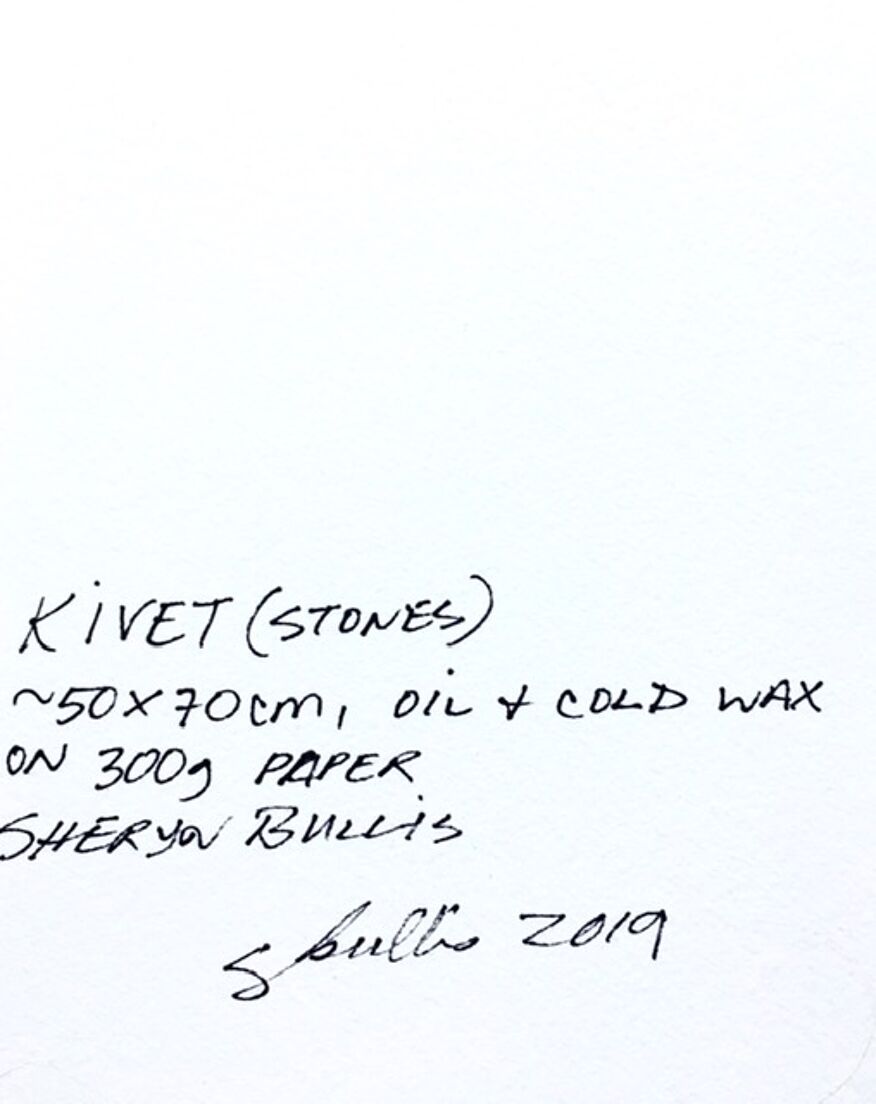 KiVET (STONES)
~50x70cm, OiL + COLD WAX
ON 300g PAPER
SHERYN BULLiS
S bullis 2019